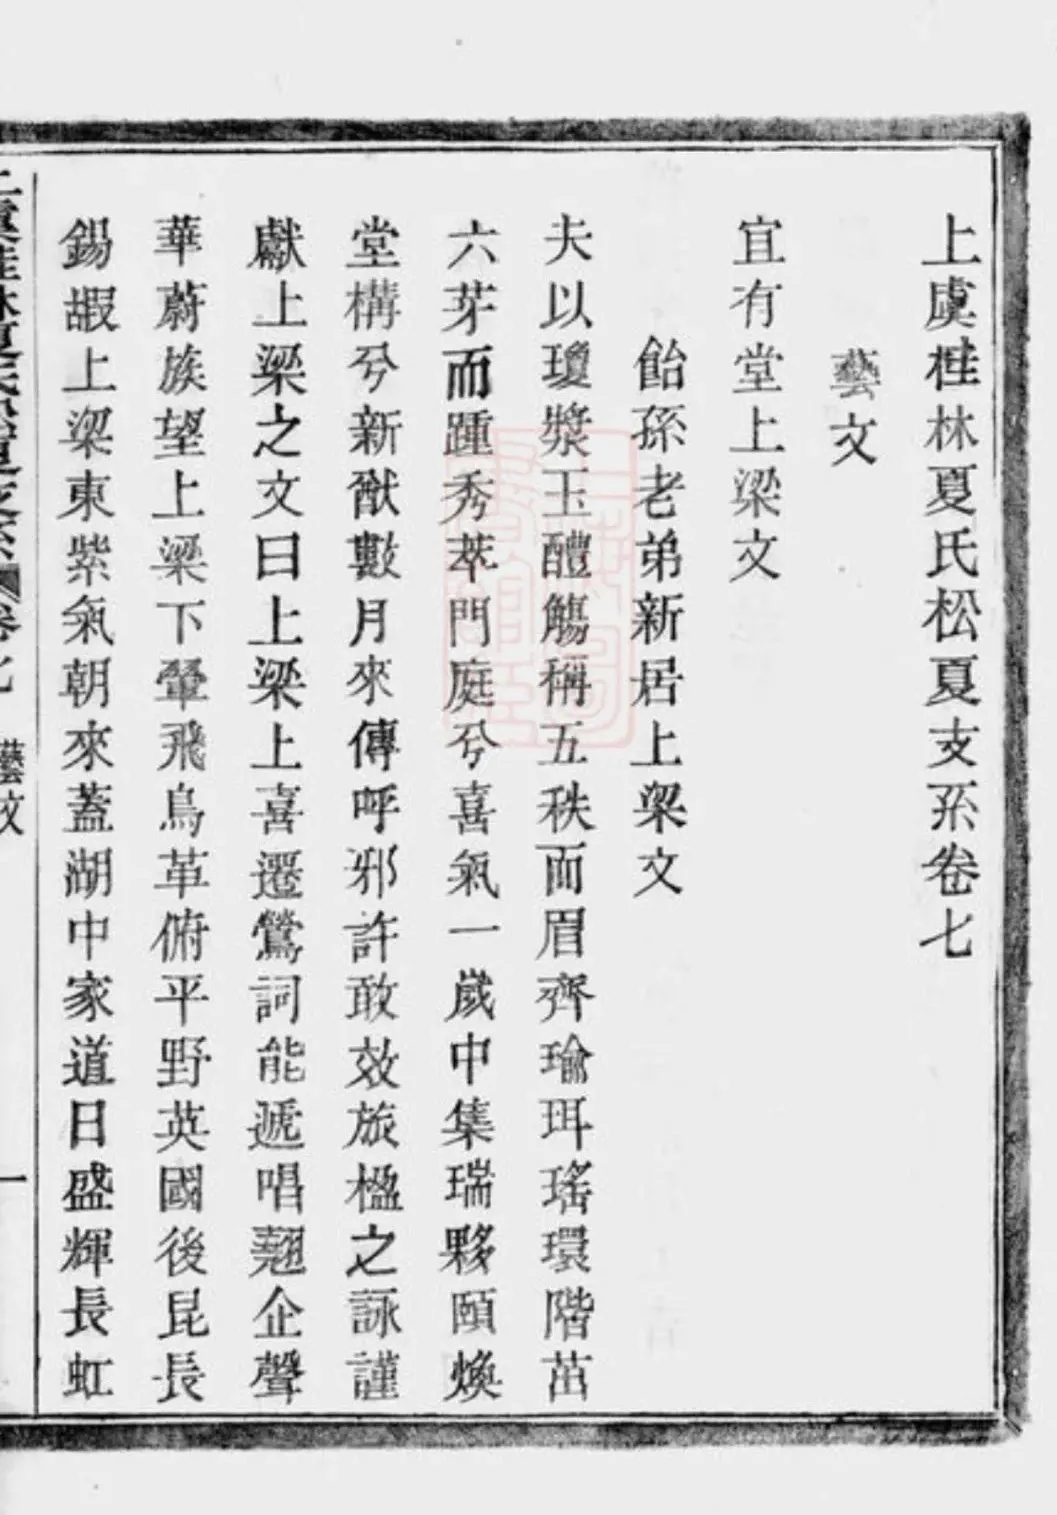 上虞桂林夏氏松夏支系卷七
藝文
宜有堂上梁文
飴孫老弟新居上梁文
夫以瓊漿玉醴觴稱五秩而眉齊瑜珥瑤環階茁
六芽而踵秀萃門庭兮喜氣一歲中集瑞夥頤煥
堂構兮新猷數月來傳呼邪許敢效旅楹之詠謹
獻上梁之文曰上梁上喜遷鶯詞能遞唱翹企聲
華蔚族望上梁下翬飛鳥革俯平野英國後昆長
錫嘏上梁東紫氣朝來蓋湖中家道日盛輝長虹
上虞桂林夏氏松夏支系 卷七 藝文 一